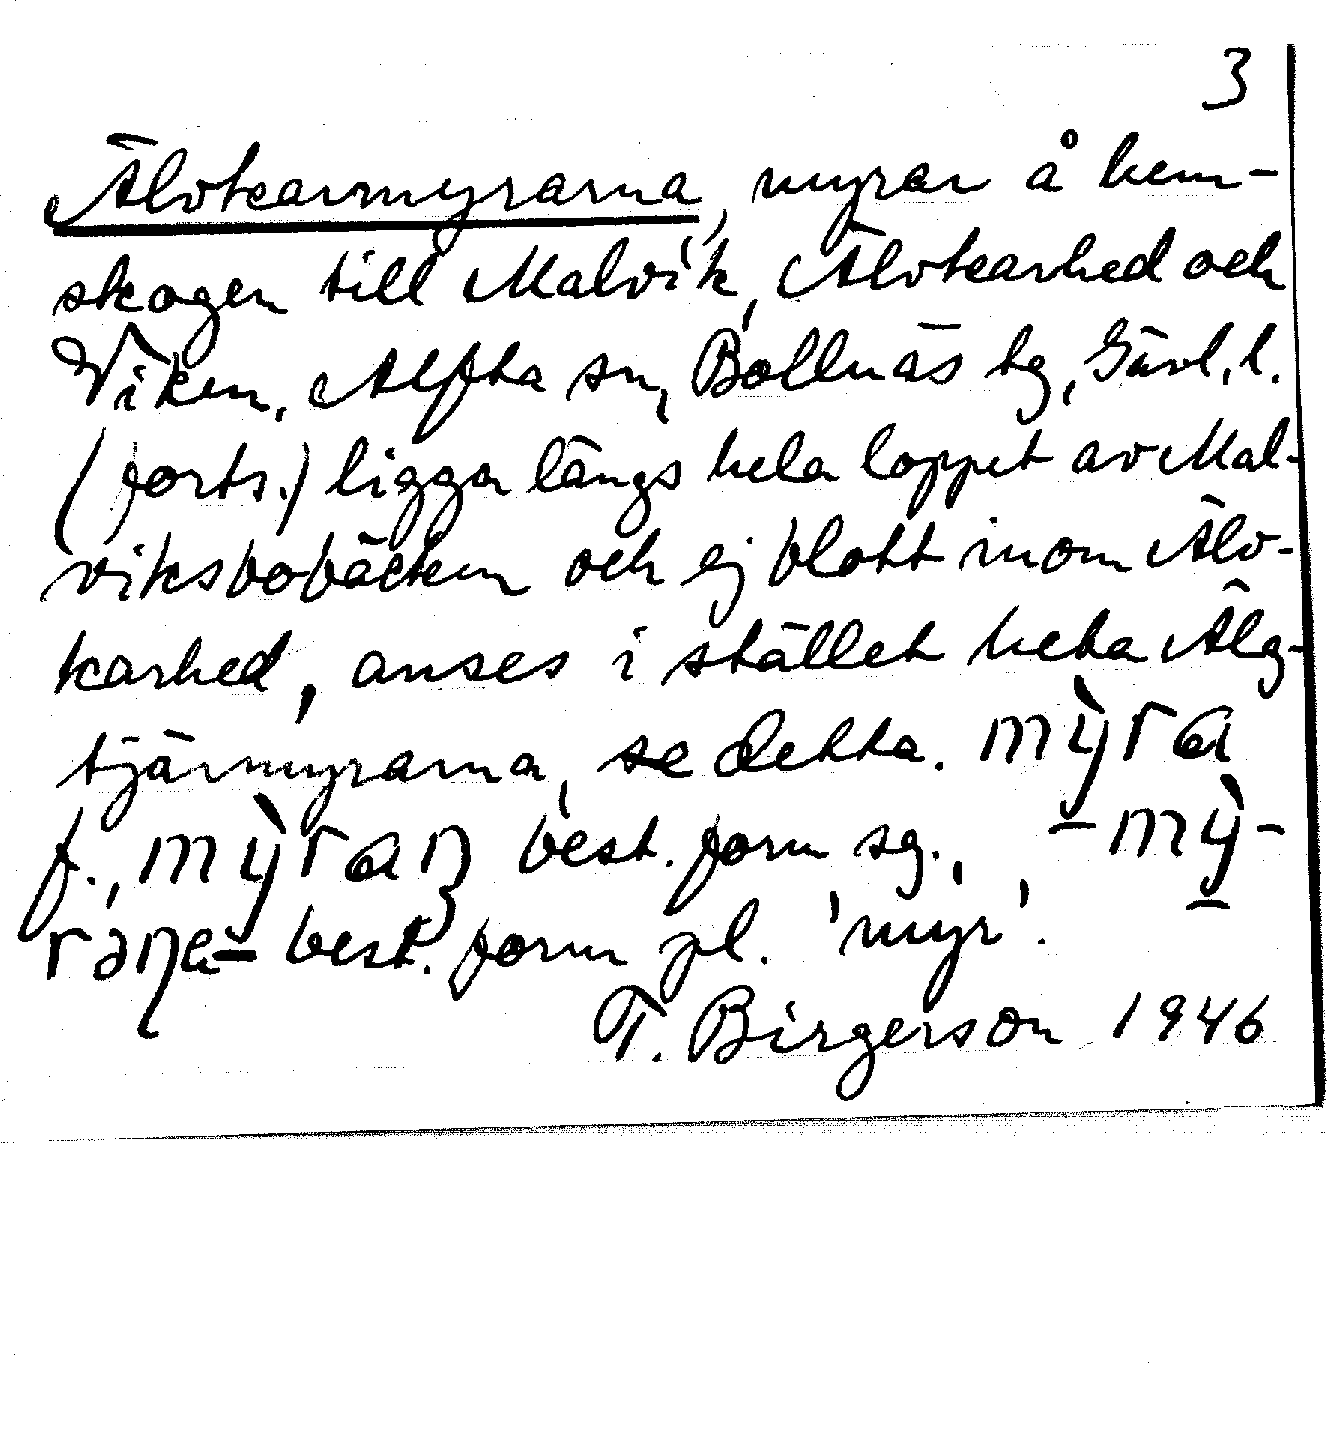 3
Älvkarmyrarna, myrar å hem-
skogen till Malvik, Älvkarhed och
Viken, Alfta sn, Bollnäs tg, Gävl. l.
(forts.) ligga längs hela loppet av Mal-
viksbobäcken och ej blott inom Älv-
karhed, anses i stället heta Älg-
tjärnmyrarna, se detta. mỳra
f., mỳraŋ best. form sg., -mỳ-
rəŋa- best. form pl. 'myr'.
T. Birgerson 1946